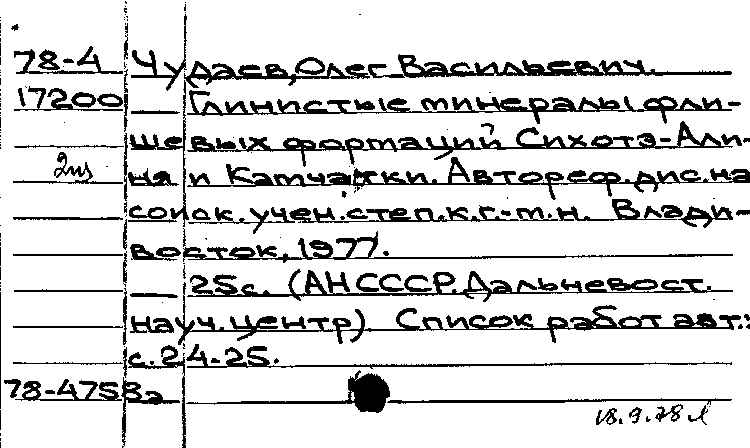 78-4 Чудаев, Олег Васильевич.
17200 Глинистые минералы фли-
шевых формаций Сихотэ-Али-
2из ня и Камчатки. Автореф. дис. на
соиск. учен. степ. к. г.-м. н. Влади-
восток, 1977.
25с. (АН СССР. Дальневост.
науч. центр). Список работ авт.:
с. 24-25.
78-4758а
18.9.78